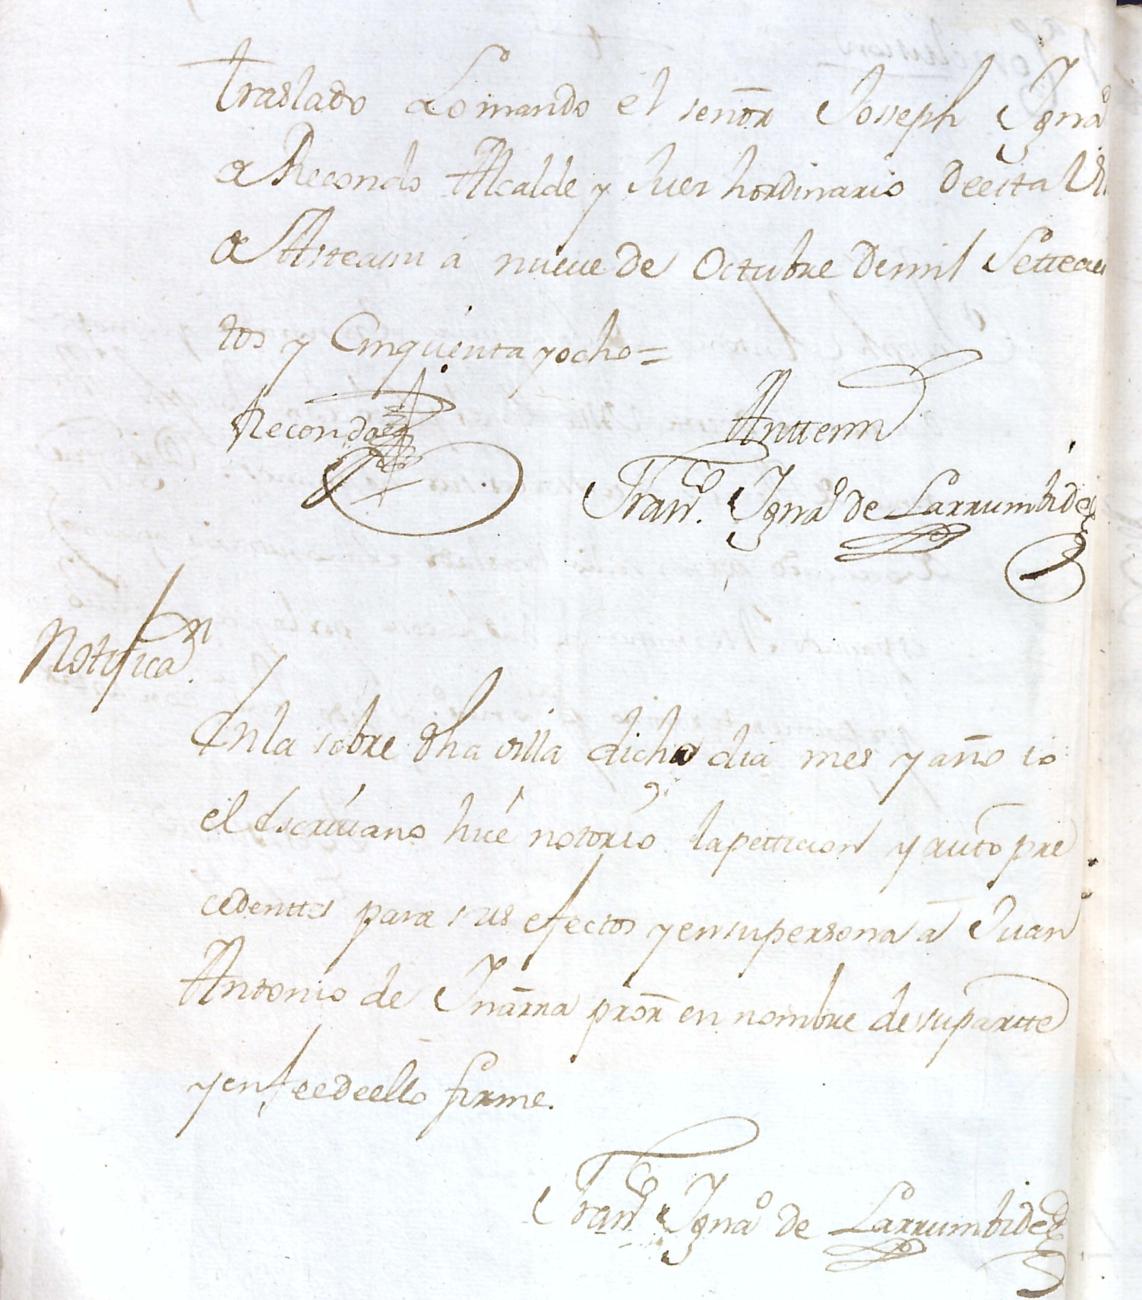 Traslado Lo mando el señor Joseph Ignaº
de Recondo Alcalde y Juez hordinario Deesta Vi
de Asteasu á nueve de Octubre Demil Settecien
tos y Cinquenta y ocho =
Recondo
Anttemi
Franº. Ignaº de Larrumbide
Notificaⁿ.
En la sobre dha villa dicho dia mes y año io
el Escrivano hicé notorio la petticion y auto pre
cedenttes para sus efectos y en su persona á Juan
Antonio de Ynarra pror en nombre de su partte
y en fee de ello firme.
Franº. Ignaº de Larrumbide